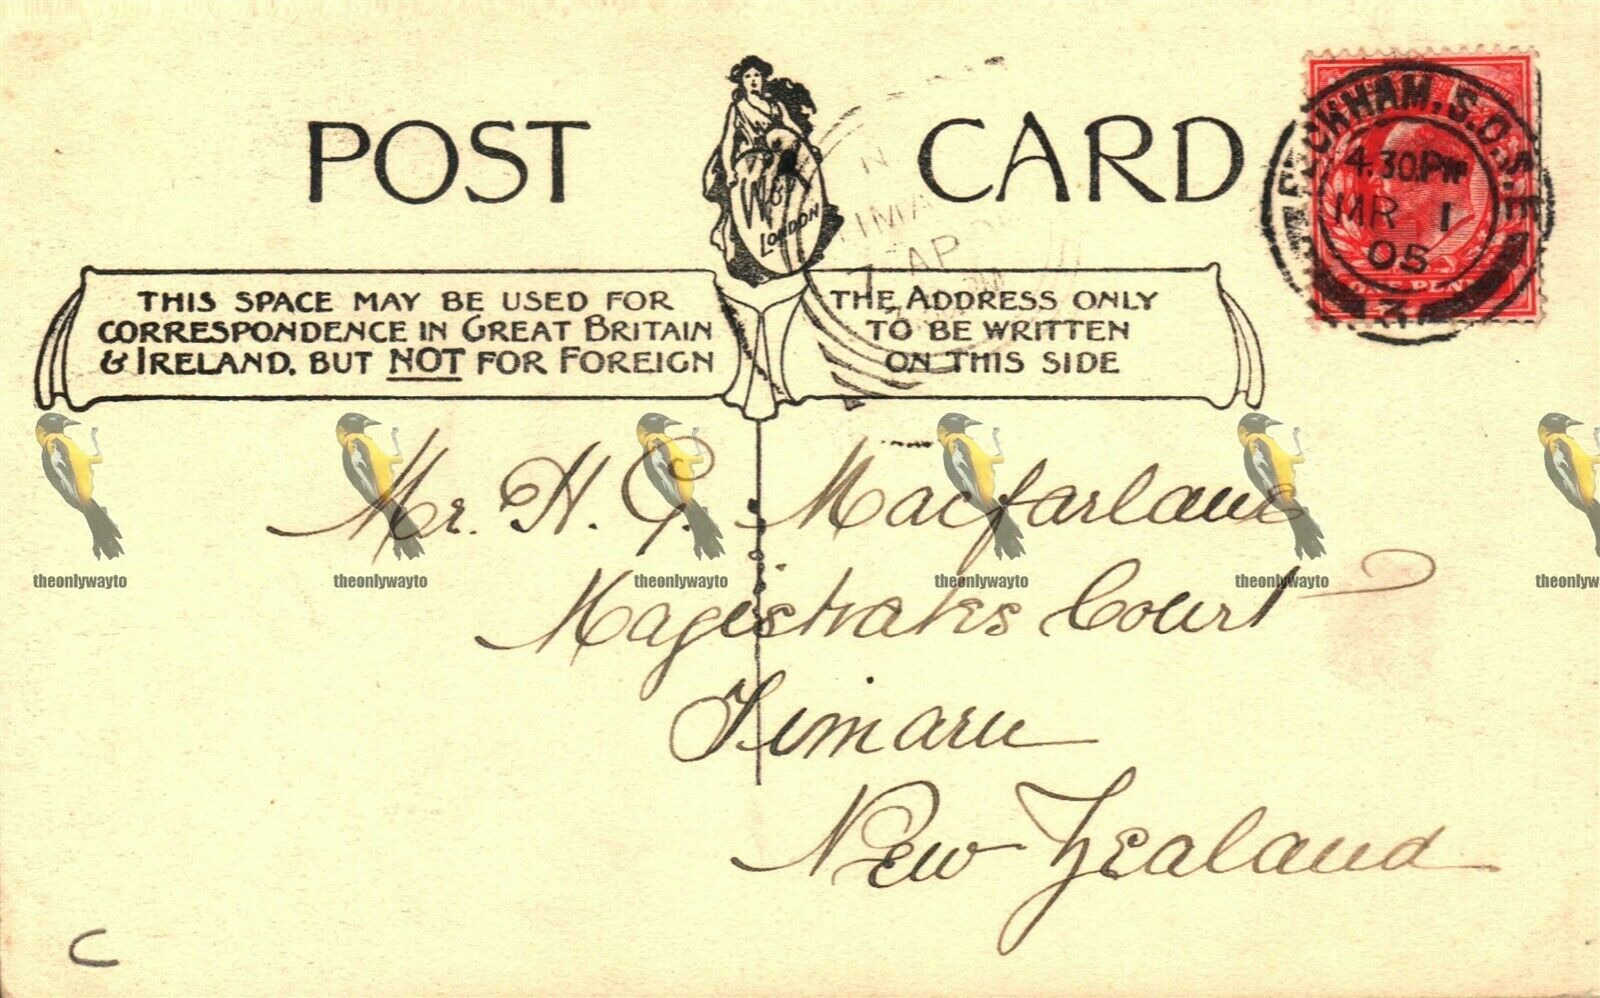 POST CARD
LONDON
THIS SPACE MAY BE USED FOR
CORRESPONDENCE IN GREAT BRITAIN
& IRELAND, BUT NOT FOR FOREIGN
THE ADDRESS ONLY
TO BE WRITTEN
ON THIS SIDE
PECKHAM. S.O. S.E.
4.30PM
MR 1
05
3
ONE PENNY
TIMA
AP
Mr. H. G. Macfarlane
Magistrates Court
Timaru
New Zealand
C
theonlywayto theonlywayto theonlywayto theonlywayto theonlywayto theonlyw